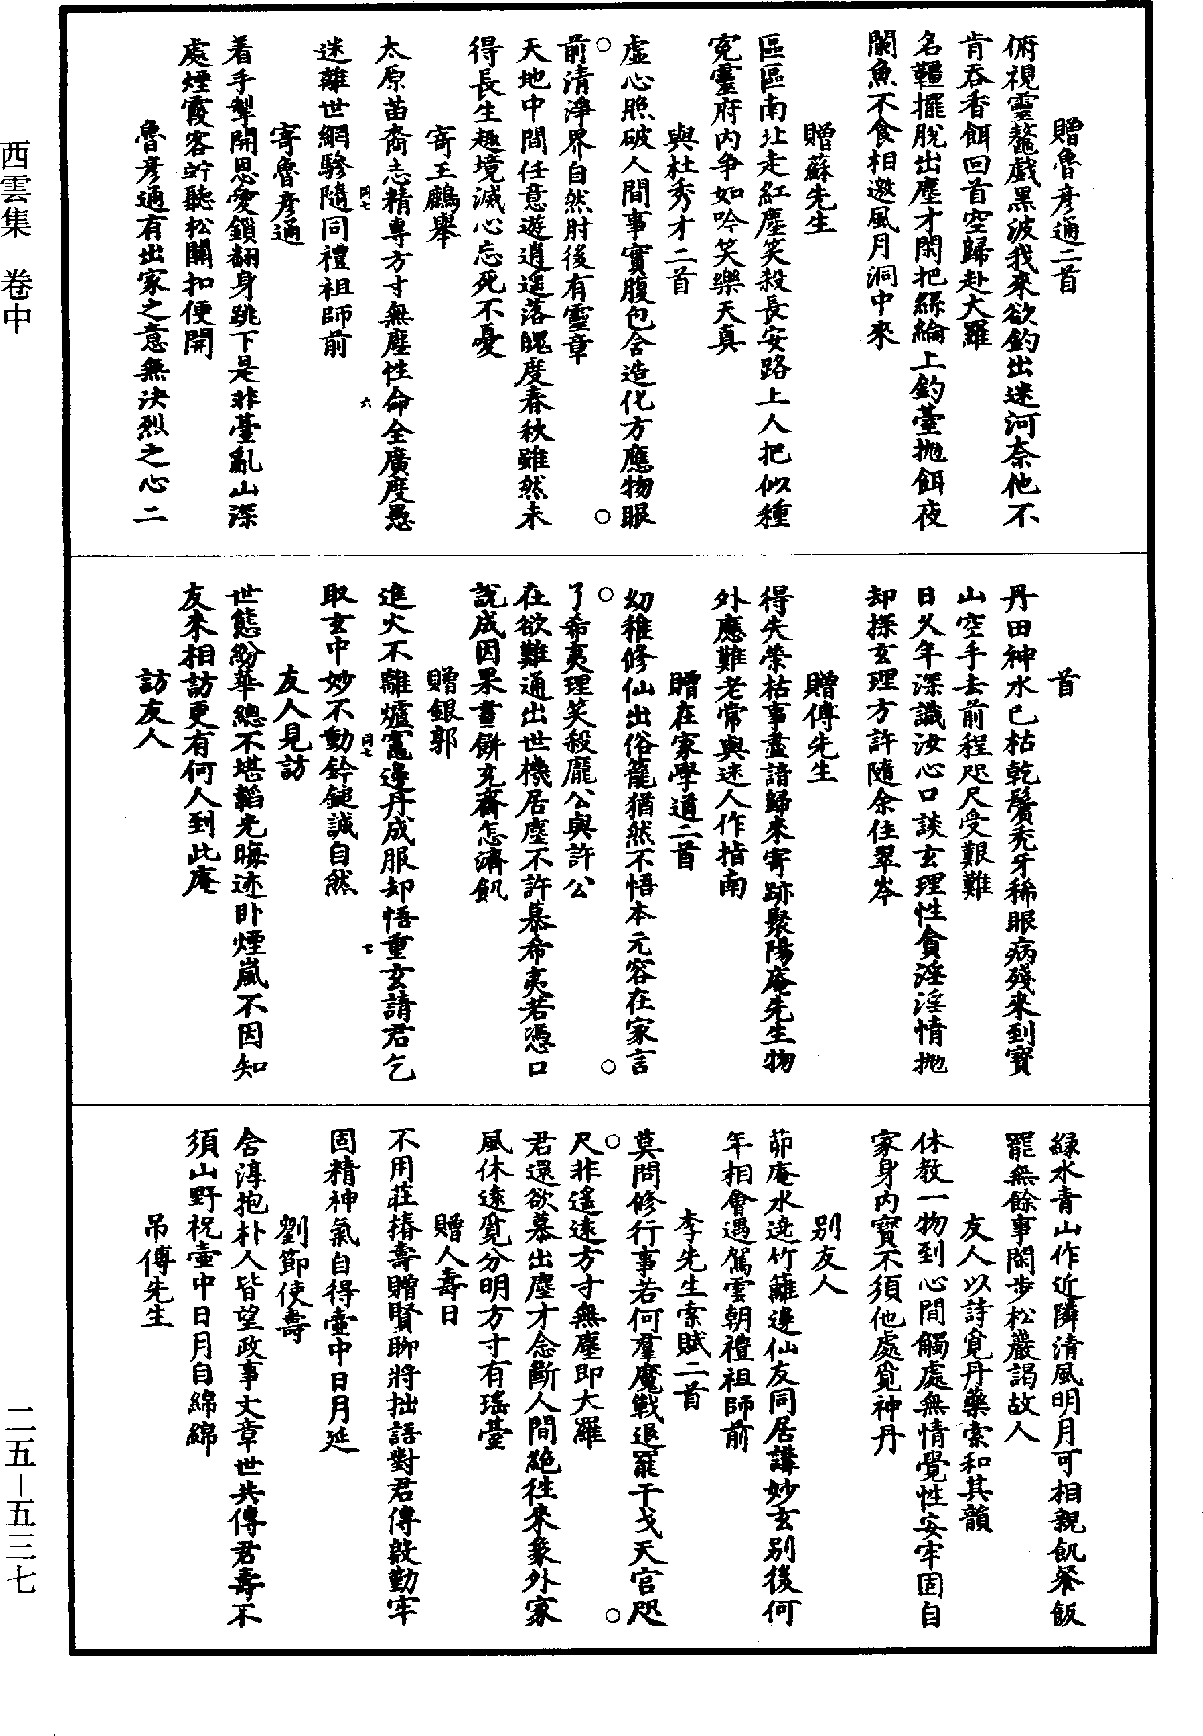 西雲集　卷中
贈魯彥通二首
俯視靈鼇戲黑波我來欲釣出迷河奈他不
肯吞香餌回首空歸赴大羅
名韁擺脫出塵才閑把絲綸上釣臺拋餌夜
闌魚不食相邀風月洞中來
贈蘇先生
區區南北走紅塵笑殺長安路上人把似種
寃靈府內爭如吟笑樂天真
與杜秀才二首
虛心照破人間事實腹包含造化方應物眼
前清淨界自然肘後有靈章
○　○
天地中間任意遊逍遥落魄度春秋雖然未
得長生趣境滅心忘死不憂
寄王鵬舉
太原苗裔志精專方寸無塵性命全廣度愚
迷離世網驂隨同禮祖師前
同七　六
寄魯彥通
着手掣開恩愛鎖翻身跳下是非臺亂山深
處煙霞客竚聽松關扣便開
魯彥通有出家之意無決烈之心二
首
丹田神水已枯乾鬢禿牙稀眼病殘來到寶
山空手去前程咫尺受艱難
日久年深識汝心口談玄理性貪淫淫情拋
却探玄理方許隨余住翠岑
贈傅先生
得失榮枯事盡諳歸來寄跡聚陽庵先生物
外應難老常與迷人作指南
贈在家學道二首
幼稚修仙出俗籠猶然不悟本元容在家言
了希夷理笑殺龐公與許公
○　○
在欲難通出世機居塵不許慕希夷若憑口
說成因果畫餅充齋怎濟飢
贈銀郭
進火不離爐竈邊丹成服却悟重玄請君乞
取玄中妙不動鈐鎚誠自然
同七　七
友人見訪
世態紛華總不堪韜光晦迹卧煙嵐不因知
友來相訪更有何人到此庵
訪友人
綠水青山作近隣清風明月可相親飢飡飯
罷無餘事閑步松巖謁故人
友人以詩覓丹藥索和其韻
休教一物到心間觸處無情覺性安牢固自
家身內寶不須他處覓神丹
别友人
茆庵水遶竹籬邊仙友同居講妙玄别後何
年相會遇駕雲朝禮祖師前
李先生索賦二首
莫問修行事若何羣魔戰退罷干戈天宫咫
尺非遥遠方寸無塵即大羅
○　○
君還欲慕出塵才念斷人間絶往來象外家
風休遠覓分明方寸有瑤臺
贈人壽日
不用莊椿壽贈賢聊將拙語對君傳敲勤牢
固精神氣自得壺中日月延
劉節使壽
含淳抱朴人皆望政事文章世共傳君壽不
須山野祝壺中日月自綿綿
吊傅先生
二五—五三七